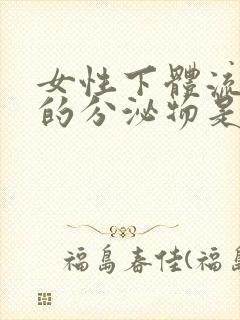 女性下體流
的分泌物是
福島春佳(福島